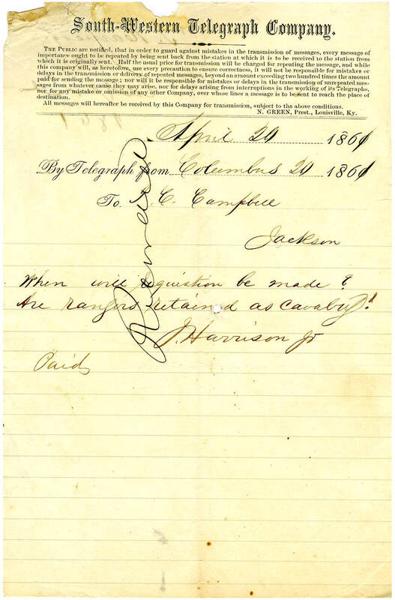 South-Western Telegraph Company.
THE PUBLIC are notified, that in order to guard against mistakes in the transmission of messages, every message of
importance ought to be repeated by being sent back from the station at which it is to be received to the station from
which it is originally sent. Half the usual price for transmission will be charged for repeating the message, and while
this company will, as heretofore, use every precaution to ensure correctness, it will not be responsible for mistakes or
delays in the transmission or delivery of repeated messages, beyond an amount exceeding two hundred times the amount
paid for sending the message; nor will it be responsible for mistakes or delays in the transmission of unrepeated mes-
sages from whatever cause they may arise, nor for delays arising from interruptions in the working of its Telegraphs,
nor for any mistake or omission of any other Company, over whose lines a message is to be sent to reach the place of
destination.
All messages will hereafter be received by this Company for transmission, subject to the above conditions.
N. GREEN, Prest., Louisville, Ky.
April 20 1861
By Telegraph from Columbus 20 1861
To C. Campbell
Jackson
When will requisition be made?
Are rangers retained as Cavalry?
J. Harrison Jr
Paid